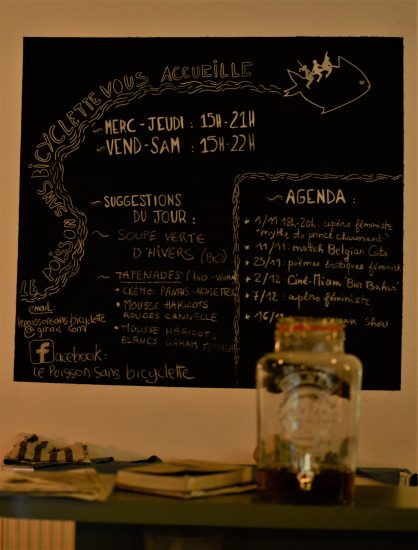 LE POISSON SANS BICYCLETTE VOUS ACCUEILLE
~ MERC-JEUDI : 15H-21H
~ VEND-SAM : 15H-22H
~ SUGGESTIONS
DU JOUR :
~ SOUPE VERTE
D'HIVERS (BIO)
~ TAPENADES
• CRÈME PANAIS-NOISETTES
• MOUSSE HARICOTS
ROUGES CANNELLE
• MOUSSE HARICOTS
BLANCS GARAM
email:
lepoissonsansbicyclette
@gmail.com
facebook:
Le Poisson sans bicyclette
~ AGENDA :
* 1/11 18h-20h: apéro féministe
"mythe du prince charmant"
* 11/11: match Belgian Cats
* 25/11: poèmes érotiques féministe
* 2/12: Ciné-Miam "Bar Bahar"
* 7/12: apéro féministe
* 16/12 Show